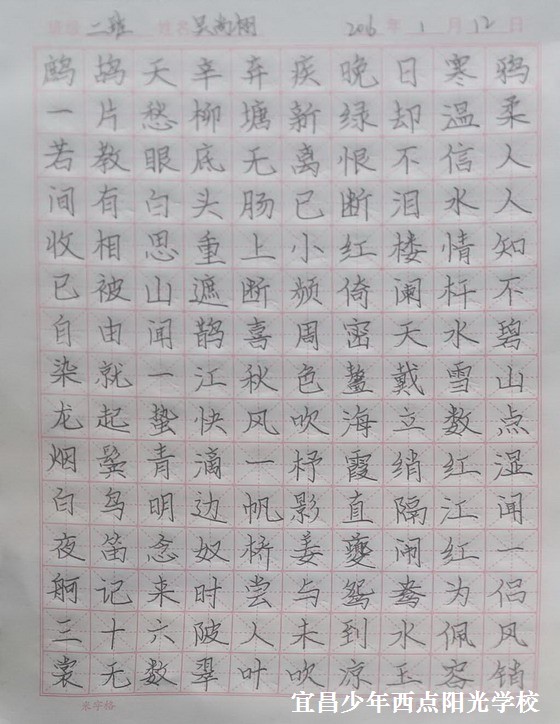 班级 二班 姓名 吴尚栩 2016年1月12日
鹧鸪天辛弃疾晚日寒鸦
一片愁柳塘新绿却温柔
若教眼底无离恨不信人
间有白头肠已断泪水人
收相思重上小红楼情知
已被山遮断频倚阑杆不
自由闻鹊喜周密天水碧
染就一江秋色鳌戴雪山
龙起蛰快风吹海立数点
烟鬟青滴一杼霞绡红湿
白鸟明边帆影直隔江闻
夜笛念奴桥姜夔闹红一
舸记来时尝与鸳鸯为侣
三十六陂人未到水佩风
裳无数翠叶吹凉玉容销
米字格
宜昌少年西点阳光学校